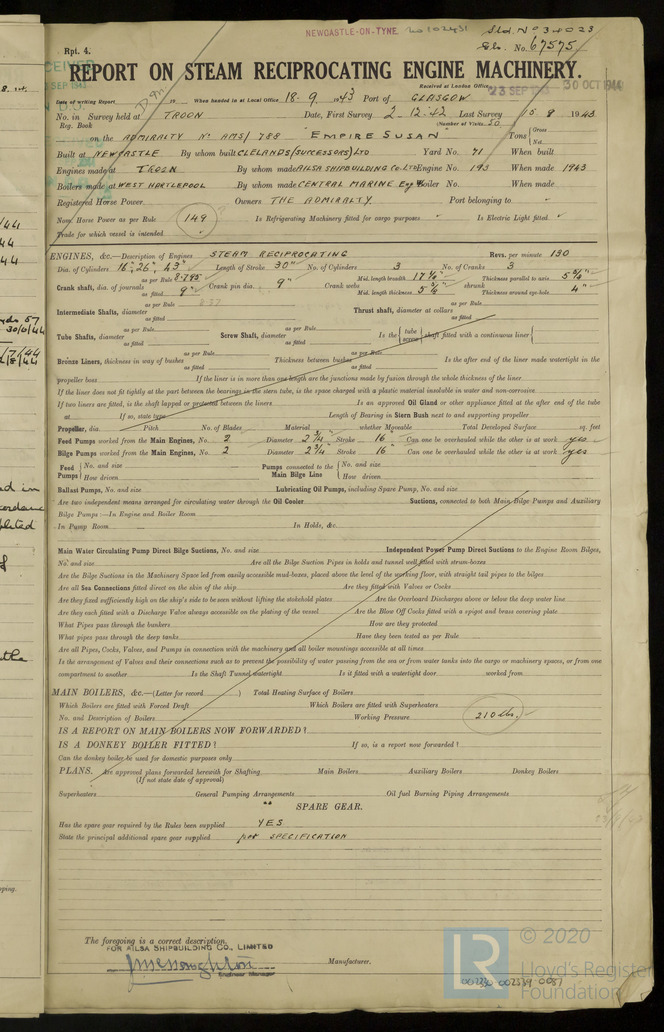 NEWCASTLE-ON-TYNE. No 102431 Sld. No 34023
Rpt. 4. Gls. No. 67575
REPORT ON STEAM RECIPROCATING ENGINE MACHINERY.
Received at London Office 23 SEP 1943 30 OCT 1944
Date of writing Report 19 When handed in at Local Office 18-9. 1943 Port of GLASGOW
No. in Survey held at TROON Date, First Survey 2-12-42 Last Survey 15 9 1943
Reg. Book (Number of Visits 50
on the ADMIRALTY No AMS/788 "EMPIRE SUSAN" Tons { Gross Net
Built at NEWCASTLE By whom built CLELANDS (SUCCESSORS) LTD Yard No. 71 When built
Engines made at TROON By whom made AILSA SHIPBUILDING Co. LTD Engine No. 193 When made 1943
Boilers made at WEST HARTLEPOOL By whom made CENTRAL MARINE Eng W Boiler No. When made
Registered Horse Power Owners THE ADMIRALTY Port belonging to
Nom. Horse Power as per Rule 149 Is Refrigerating Machinery fitted for cargo purposes Is Electric Light fitted
Trade for which vessel is intended
ENGINES, &c.—Description of Engines STEAM RECIPROCATING Revs. per minute 130
Dia. of Cylinders 16", 26", 43" Length of Stroke 30" No. of Cylinders 3 No. of Cranks 3
Crank shaft, dia. of journals as per Rule 8.795 as fitted 9" Crank pin dia. 9" Crank webs Mid. length breadth 17 1/4" Mid. length thickness 5 3/4" shrunk Thickness parallel to axis 5 3/4" Thickness around eye-hole 4"
Intermediate Shafts, diameter as per Rule as fitted Thrust shaft, diameter at collars as per Rule as fitted
Tube Shafts, diameter as per Rule as fitted Screw Shaft, diameter as per Rule as fitted Is the { tube screw } shaft fitted with a continuous liner {
Bronze Liners, thickness in way of bushes as per Rule as fitted Thickness between bushes as per Rule as fitted Is the after end of the liner made watertight in the
propeller boss If the liner is in more than one length are the junctions made by fusion through the whole thickness of the liner
If the liner does not fit tightly at the part between the bearings in the stern tube, is the space charged with a plastic material insoluble in water and non-corrosive
If two liners are fitted, is the shaft lapped or protected between the liners Is an approved Oil Gland or other appliance fitted at the after end of the tube
at If so, state type Length of Bearing in Stern Bush next to and supporting propeller
Propeller, dia. Pitch No. of Blades Material whether Moveable Total Developed Surface sq. feet
Feed Pumps worked from the Main Engines, No. 2 Diameter 2 3/4" Stroke 16" Can one be overhauled while the other is at work yes
Bilge Pumps worked from the Main Engines, No. 2 Diameter 2 3/4" Stroke 16" Can one be overhauled while the other is at work yes
Feed Pumps { No. and size How driven Pumps connected to the Main Bilge Line { No. and size How driven
Ballast Pumps, No. and size Lubricating Oil Pumps, including Spare Pump, No. and size
Are two independent means arranged for circulating water through the Oil Cooler Suctions, connected to both Main Bilge Pumps and Auxiliary
Bilge Pumps :—In Engine and Boiler Room
In Pump Room In Holds, &c.
Main Water Circulating Pump Direct Bilge Suctions, No. and size Independent Power Pump Direct Suctions to the Engine Room Bilges,
No. and size Are all the Bilge Suction Pipes in holds and tunnel well fitted with strum-boxes
Are the Bilge Suctions in the Machinery Space led from easily accessible mud-boxes, placed above the level of the working floor, with straight tail pipes to the bilges
Are all Sea Connections fitted direct on the skin of the ship Are they fitted with Valves or Cocks
Are they fixed sufficiently high on the ship's side to be seen without lifting the stokehold plates Are the Overboard Discharges above or below the deep water line
Are they each fitted with a Discharge Valve always accessible on the plating of the vessel Are the Blow Off Cocks fitted with a spigot and brass covering plate
What Pipes pass through the bunkers How are they protected
What pipes pass through the deep tanks Have they been tested as per Rule
Are all Pipes, Cocks, Valves, and Pumps in connection with the machinery and all boiler mountings accessible at all times
Is the arrangement of Valves and their connections such as to prevent the possibility of water passing from the sea or from water tanks into the cargo or machinery spaces, or from one
compartment to another Is the Shaft Tunnel watertight Is it fitted with a watertight door worked from
MAIN BOILERS, &c.—(Letter for record ) Total Heating Surface of Boilers
Which Boilers are fitted with Forced Draft Which Boilers are fitted with Superheaters
No. and Description of Boilers Working Pressure 210 lbs.
IS A REPORT ON MAIN BOILERS NOW FORWARDED?
IS A DONKEY BOILER FITTED? If so, is a report now forwarded?
Can the donkey boiler be used for domestic purposes only
PLANS. Are approved plans forwarded herewith for Shafting Main Boilers Auxiliary Boilers Donkey Boilers
(If not state date of approval)
Superheaters General Pumping Arrangements Oil fuel Burning Piping Arrangements
SPARE GEAR.
Has the spare gear required by the Rules been supplied YES
State the principal additional spare gear supplied per SPECIFICATION
The foregoing is a correct description,
FOR AILSA SHIPBUILDING CO., LIMITED
Manufacturer.
Engineer Manager
© 2020
LR Lloyd's Register
Foundation
002230-002239-0081